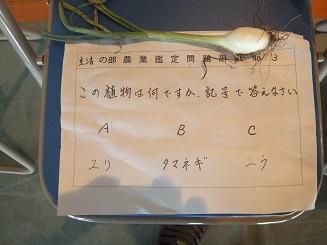 生活の部農業鑑定問題用紙 No 3
この植物は何ですか、記号で答えなさい
A B C
ユリ タマネギ ニラ